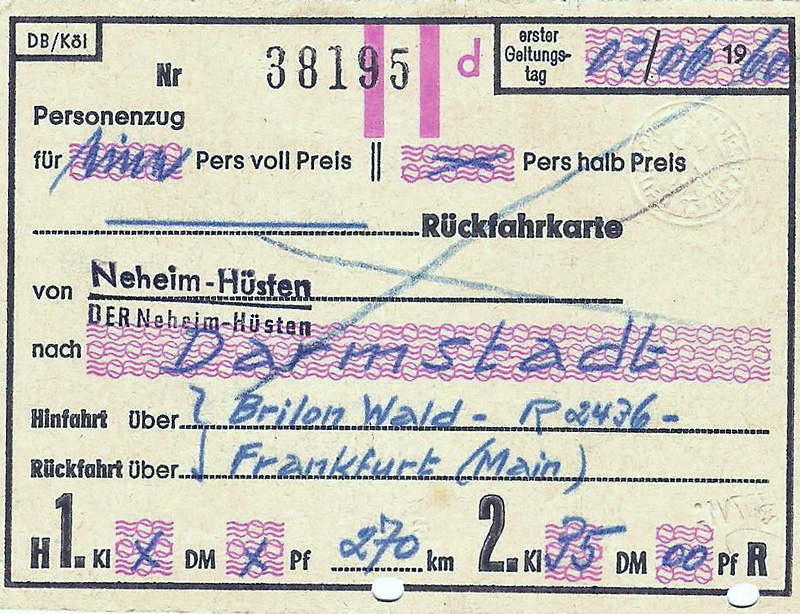 DB/Köl
Nr 38195 d
erster
Geltungs-
tag 03/06 1960
Personenzug
für Pers voll Preis || x Pers halb Preis
Rückfahrkarte
von Neheim-Hüsten
DER Neheim-Hüsten
nach Darmstadt
Hinfahrt über Brilon Wald - R 2436 -
Rückfahrt über Frankfurt (Main)
H 1. Kl x DM x Pf 270 km 2. Kl 35 DM 00 Pf R